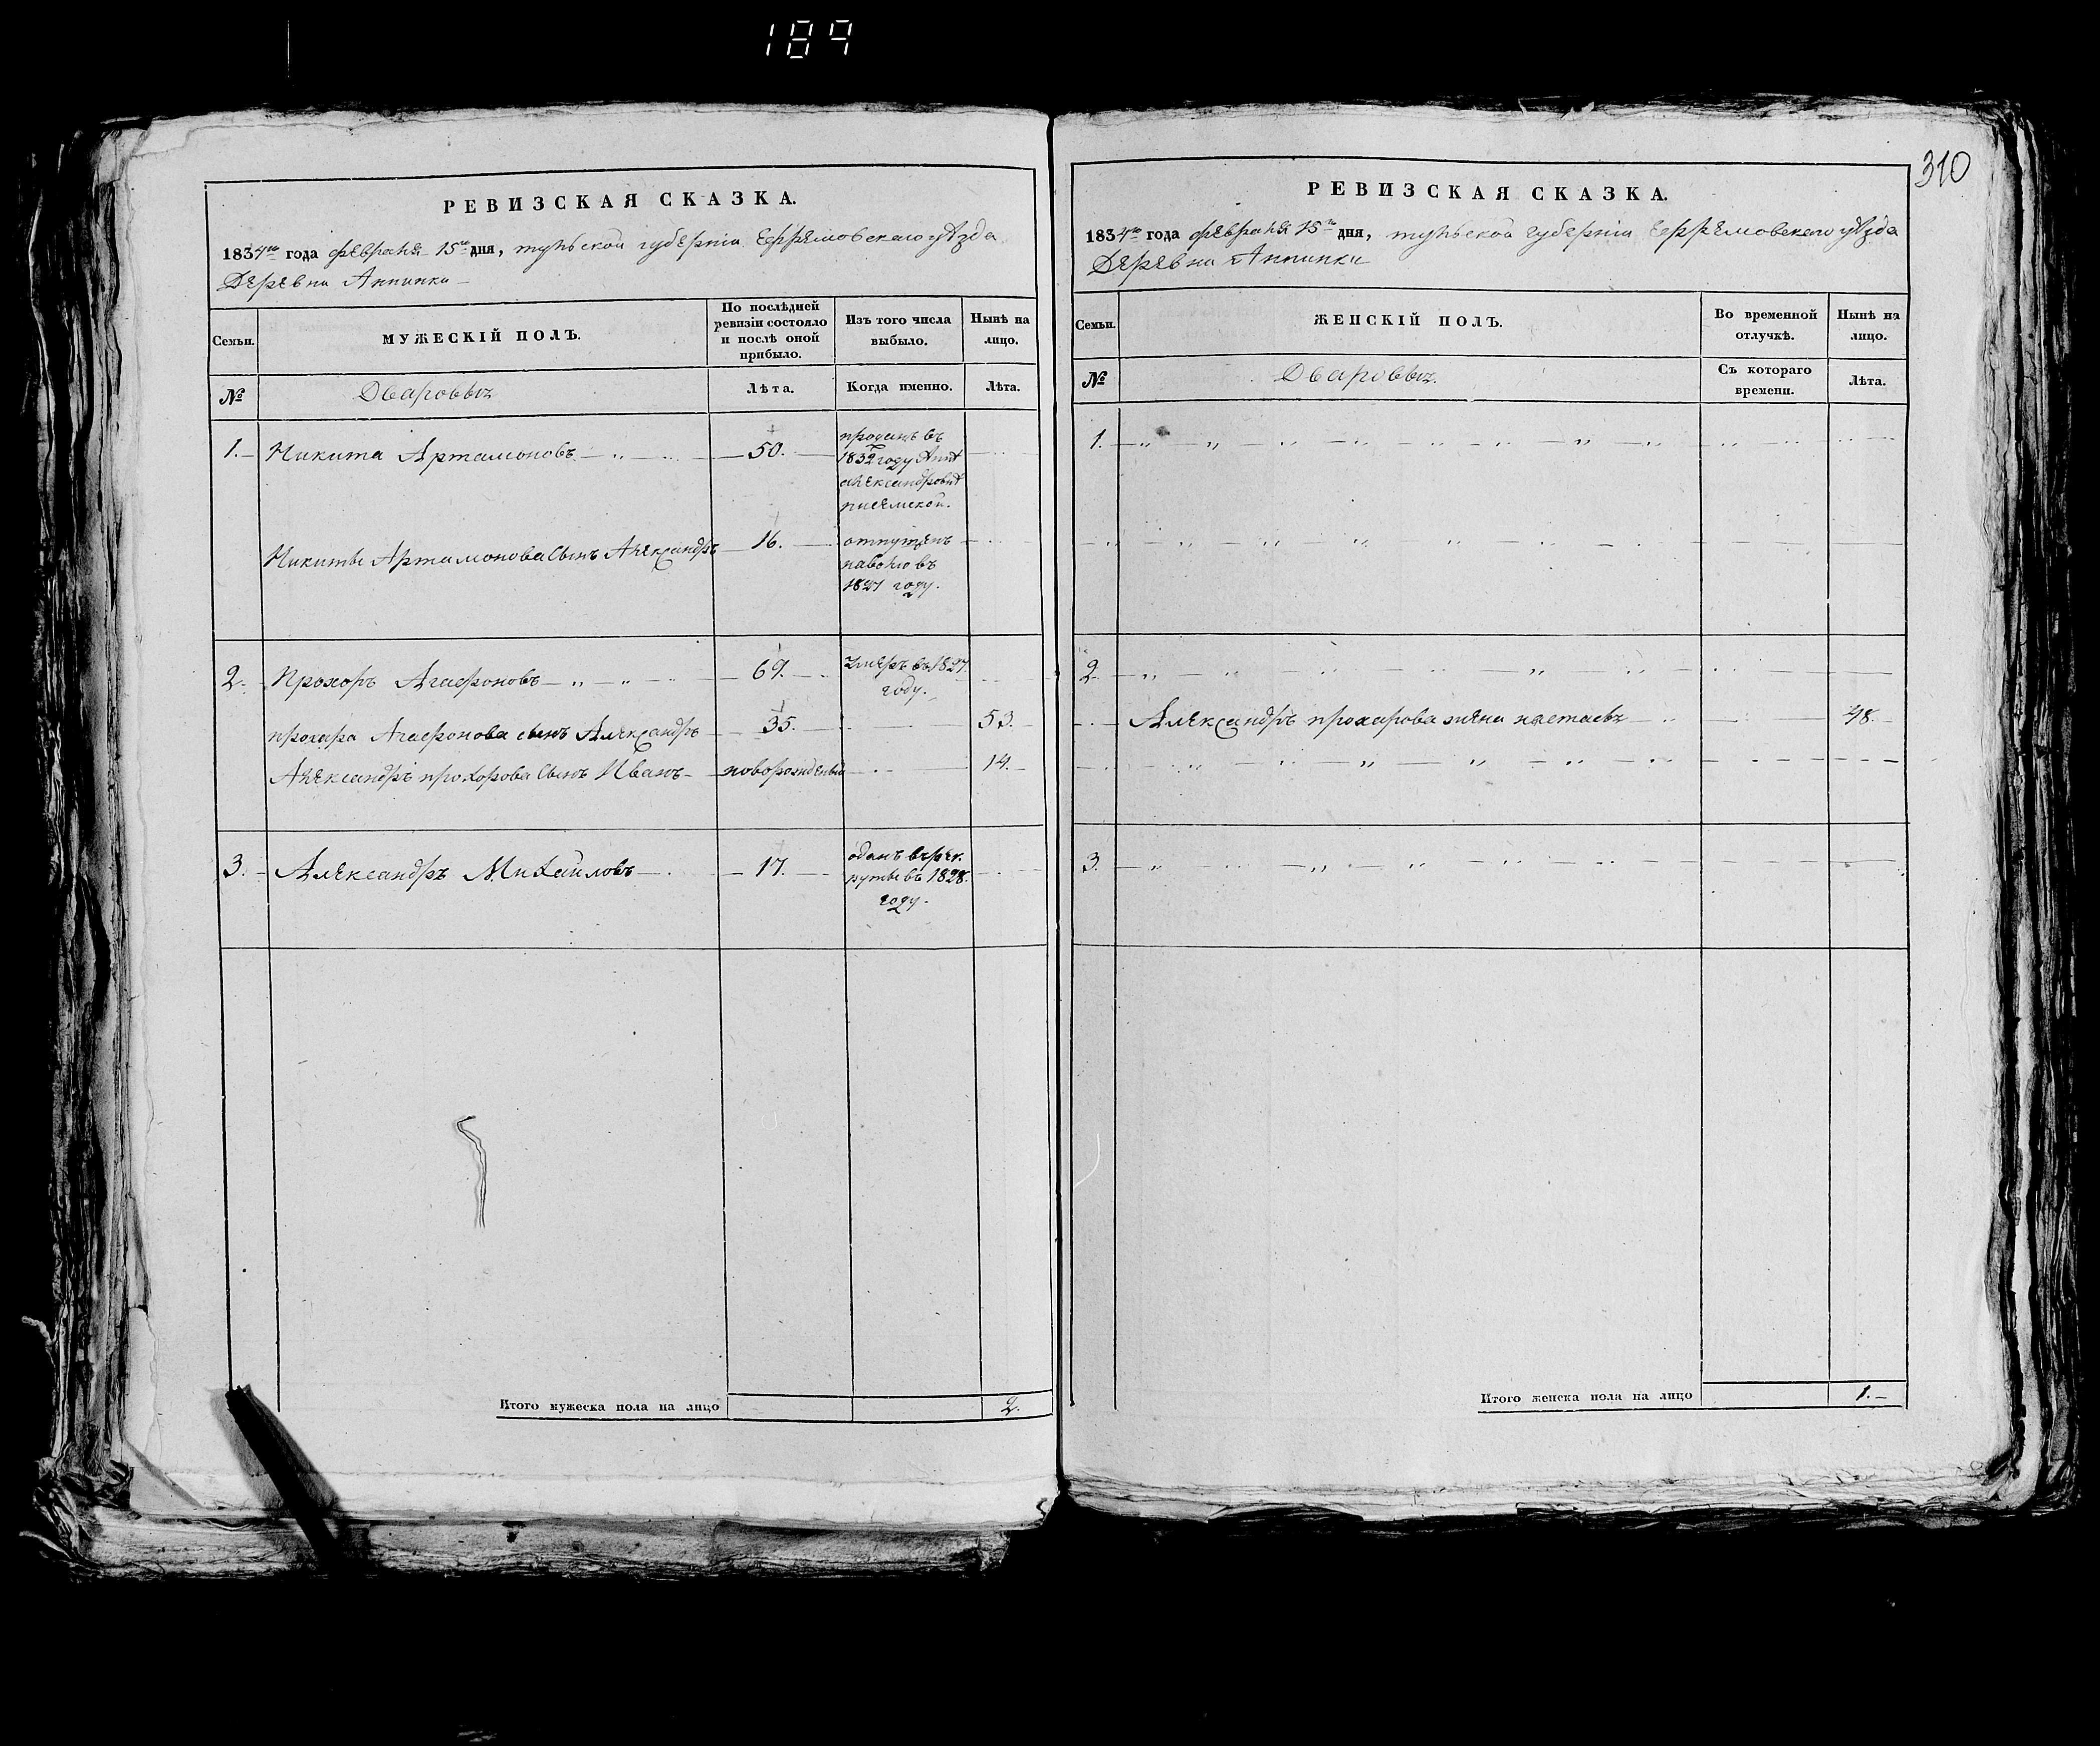 189
310
РЕВИЗСКАЯ СКАЗКА.
1834го года февраля 15го дня, тульской губерніи Ефремовскаго уѣзда
Деревни Аннинки
Семьи. МУЖЕСКІЙ ПОЛЪ. По послѣдней ревизіи состояло и послѣ оной прибыло. Изъ того числа выбыло. Нынѣ на лицо.
№ Дваровыхъ Лѣта. Когда именно. Лѣта.
1. Никита Артамоновъ 50. проданъ въ
1832 году Аннѣ
александровнѣ
писемской.
Никиты Артамонова сынъ Александръ 16. отпущенъ
наволю въ
1821 году.
2. Прохоръ Агафоновъ 69. умеръ въ 1827.
году.
прохора Агафонова сынъ Александръ 35. 53.
Александръ прохорова сынъ Иванъ новорожденный 14.
3. Александръ Михайловъ 17. оданъ врек
руты въ 1828.
году.
Итого мужеска пола на лицо 2.
РЕВИЗСКАЯ СКАЗКА.
1834го года февраля 15го дня, тульской губерніи Ефремовскаго уѣзда
Деревни Аннинки
Семьи. ЖЕНСКІЙ ПОЛЪ. Во временной отлучкѣ. Нынѣ на лицо.
№ Дваровыхъ. Съ котораго времени. Лѣта.
1.
2.
Александръ прохарова жена 48.
3.
Итого женска пола на лицо 1.